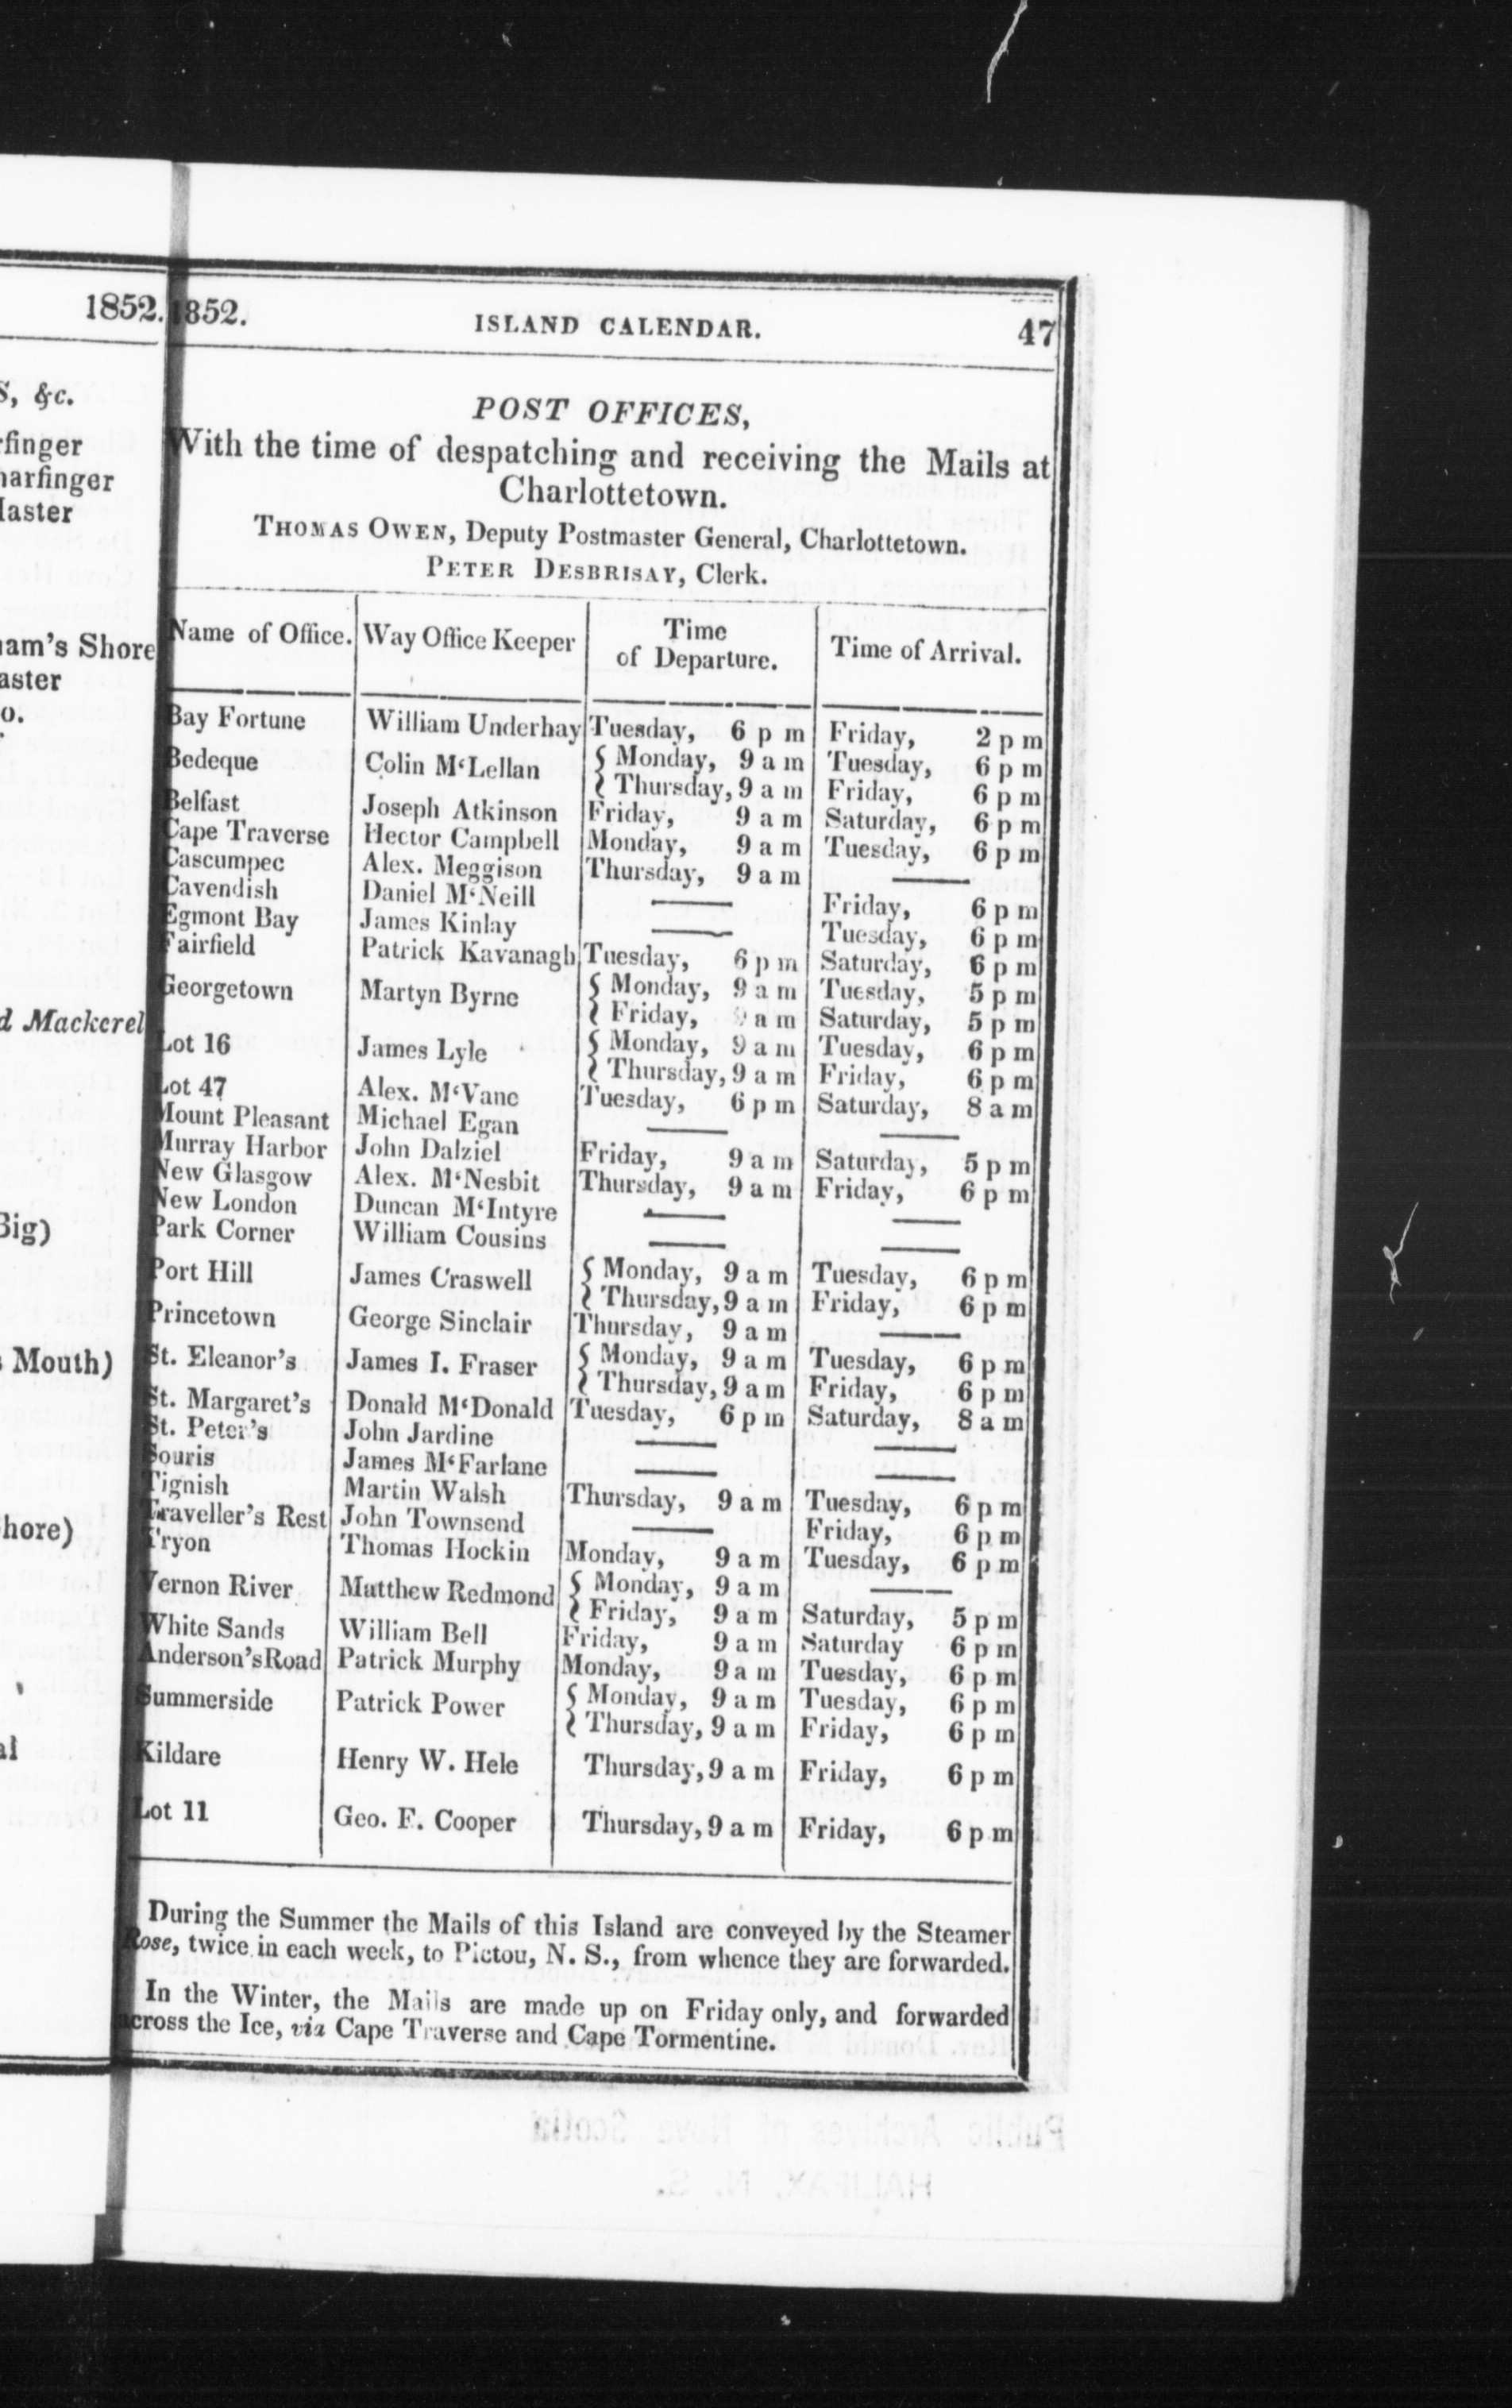 1852.
S, &c.
rfinger
harfinger
aster
am's Shore
aster
o.
d Mackerel
Big)
s Mouth)
hore)
al
1852. ISLAND CALENDAR. 47
POST OFFICES,
With the time of despatching and receiving the Mails at
Charlottetown.
THOMAS OWEN, Deputy Postmaster General, Charlottetown.
PETER DESBRISAY, Clerk.
Name of Office. Way Office Keeper Time of Departure. Time of Arrival.
Bay Fortune William Underhay Tuesday, 6 p m Friday, 2 p m
Bedeque Colin M‘Lellan { Monday, 9 a m Tuesday, 6 p m
Thursday, 9 a m Friday, 6 p m
Belfast Joseph Atkinson Friday, 9 a m Saturday, 6 p m
Cape Traverse Hector Campbell Monday, 9 a m Tuesday, 6 p m
Cascumpec Alex. Meggison Thursday, 9 a m ——
Cavendish Daniel M‘Neill —— Friday, 6 p m
Egmont Bay James Kinlay —— Tuesday, 6 p m
Fairfield Patrick Kavanagh Tuesday, 6 p m Saturday, 6 p m
Georgetown Martyn Byrne { Monday, 9 a m Tuesday, 5 p m
Friday, 9 a m Saturday, 5 p m
Lot 16 James Lyle { Monday, 9 a m Tuesday, 6 p m
Thursday, 9 a m Friday, 6 p m
Lot 47 Alex. M‘Vane Tuesday, 6 p m Saturday, 8 a m
Mount Pleasant Michael Egan —— ——
Murray Harbor John Dalziel Friday, 9 a m Saturday, 5 p m
New Glasgow Alex. M‘Nesbit Thursday, 9 a m Friday, 6 p m
New London Duncan M‘Intyre —— ——
Park Corner William Cousins —— ——
Port Hill James Craswell { Monday, 9 a m Tuesday, 6 p m
Thursday, 9 a m Friday, 6 p m
Princetown George Sinclair Thursday, 9 a m ——
St. Eleanor's James I. Fraser { Monday, 9 a m Tuesday, 6 p m
Thursday, 9 a m Friday, 6 p m
St. Margaret's Donald M‘Donald Tuesday, 6 p m Saturday, 8 a m
St. Peter's John Jardine —— ——
Souris James M‘Farlane —— ——
Tignish Martin Walsh Thursday, 9 a m Tuesday, 6 p m
Traveller's Rest John Townsend —— Friday, 6 p m
Tryon Thomas Hockin Monday, 9 a m Tuesday, 6 p m
Vernon River Matthew Redmond { Monday, 9 a m ——
Friday, 9 a m Saturday, 5 p m
White Sands William Bell Friday, 9 a m Saturday 6 p m
Anderson's Road Patrick Murphy Monday, 9 a m Tuesday, 6 p m
Summerside Patrick Power { Monday, 9 a m Tuesday, 6 p m
Thursday, 9 a m Friday, 6 p m
Kildare Henry W. Hele Thursday, 9 a m Friday, 6 p m
Lot 11 Geo. F. Cooper Thursday, 9 a m Friday, 6 p m
During the Summer the Mails of this Island are conveyed by the Steamer
Rose, twice in each week, to Pictou, N. S., from whence they are forwarded.
In the Winter, the Mails are made up on Friday only, and forwarded
across the Ice, via Cape Traverse and Cape Tormentine.
Public Archives of Nova Scotia
HALIFAX, N. S.